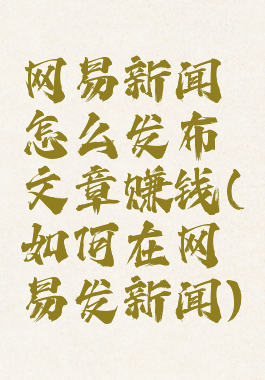 网易新闻
怎么发布
文章赚钱(
如何在网
易发新闻)